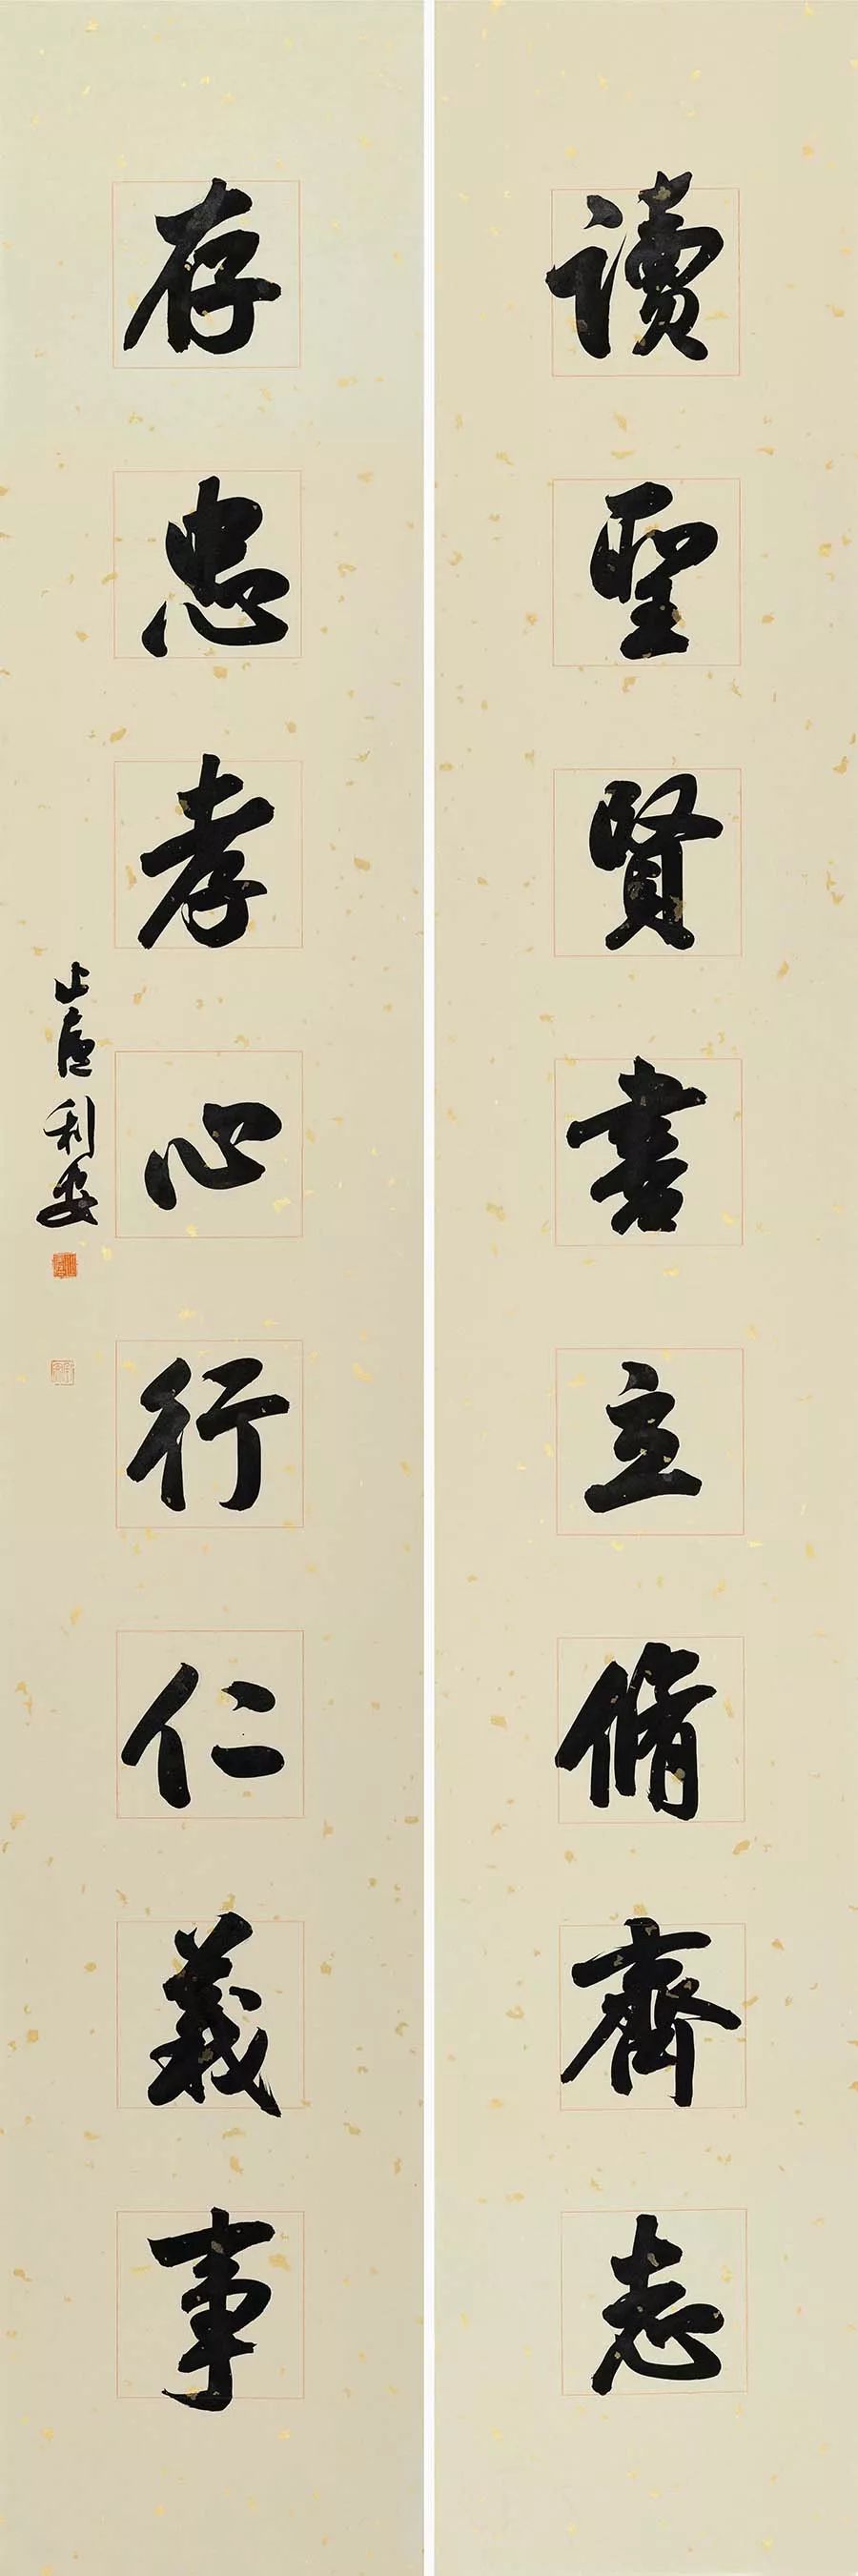 讀聖賢書立脩齊志
存忠孝心行仁義事
止廬利安